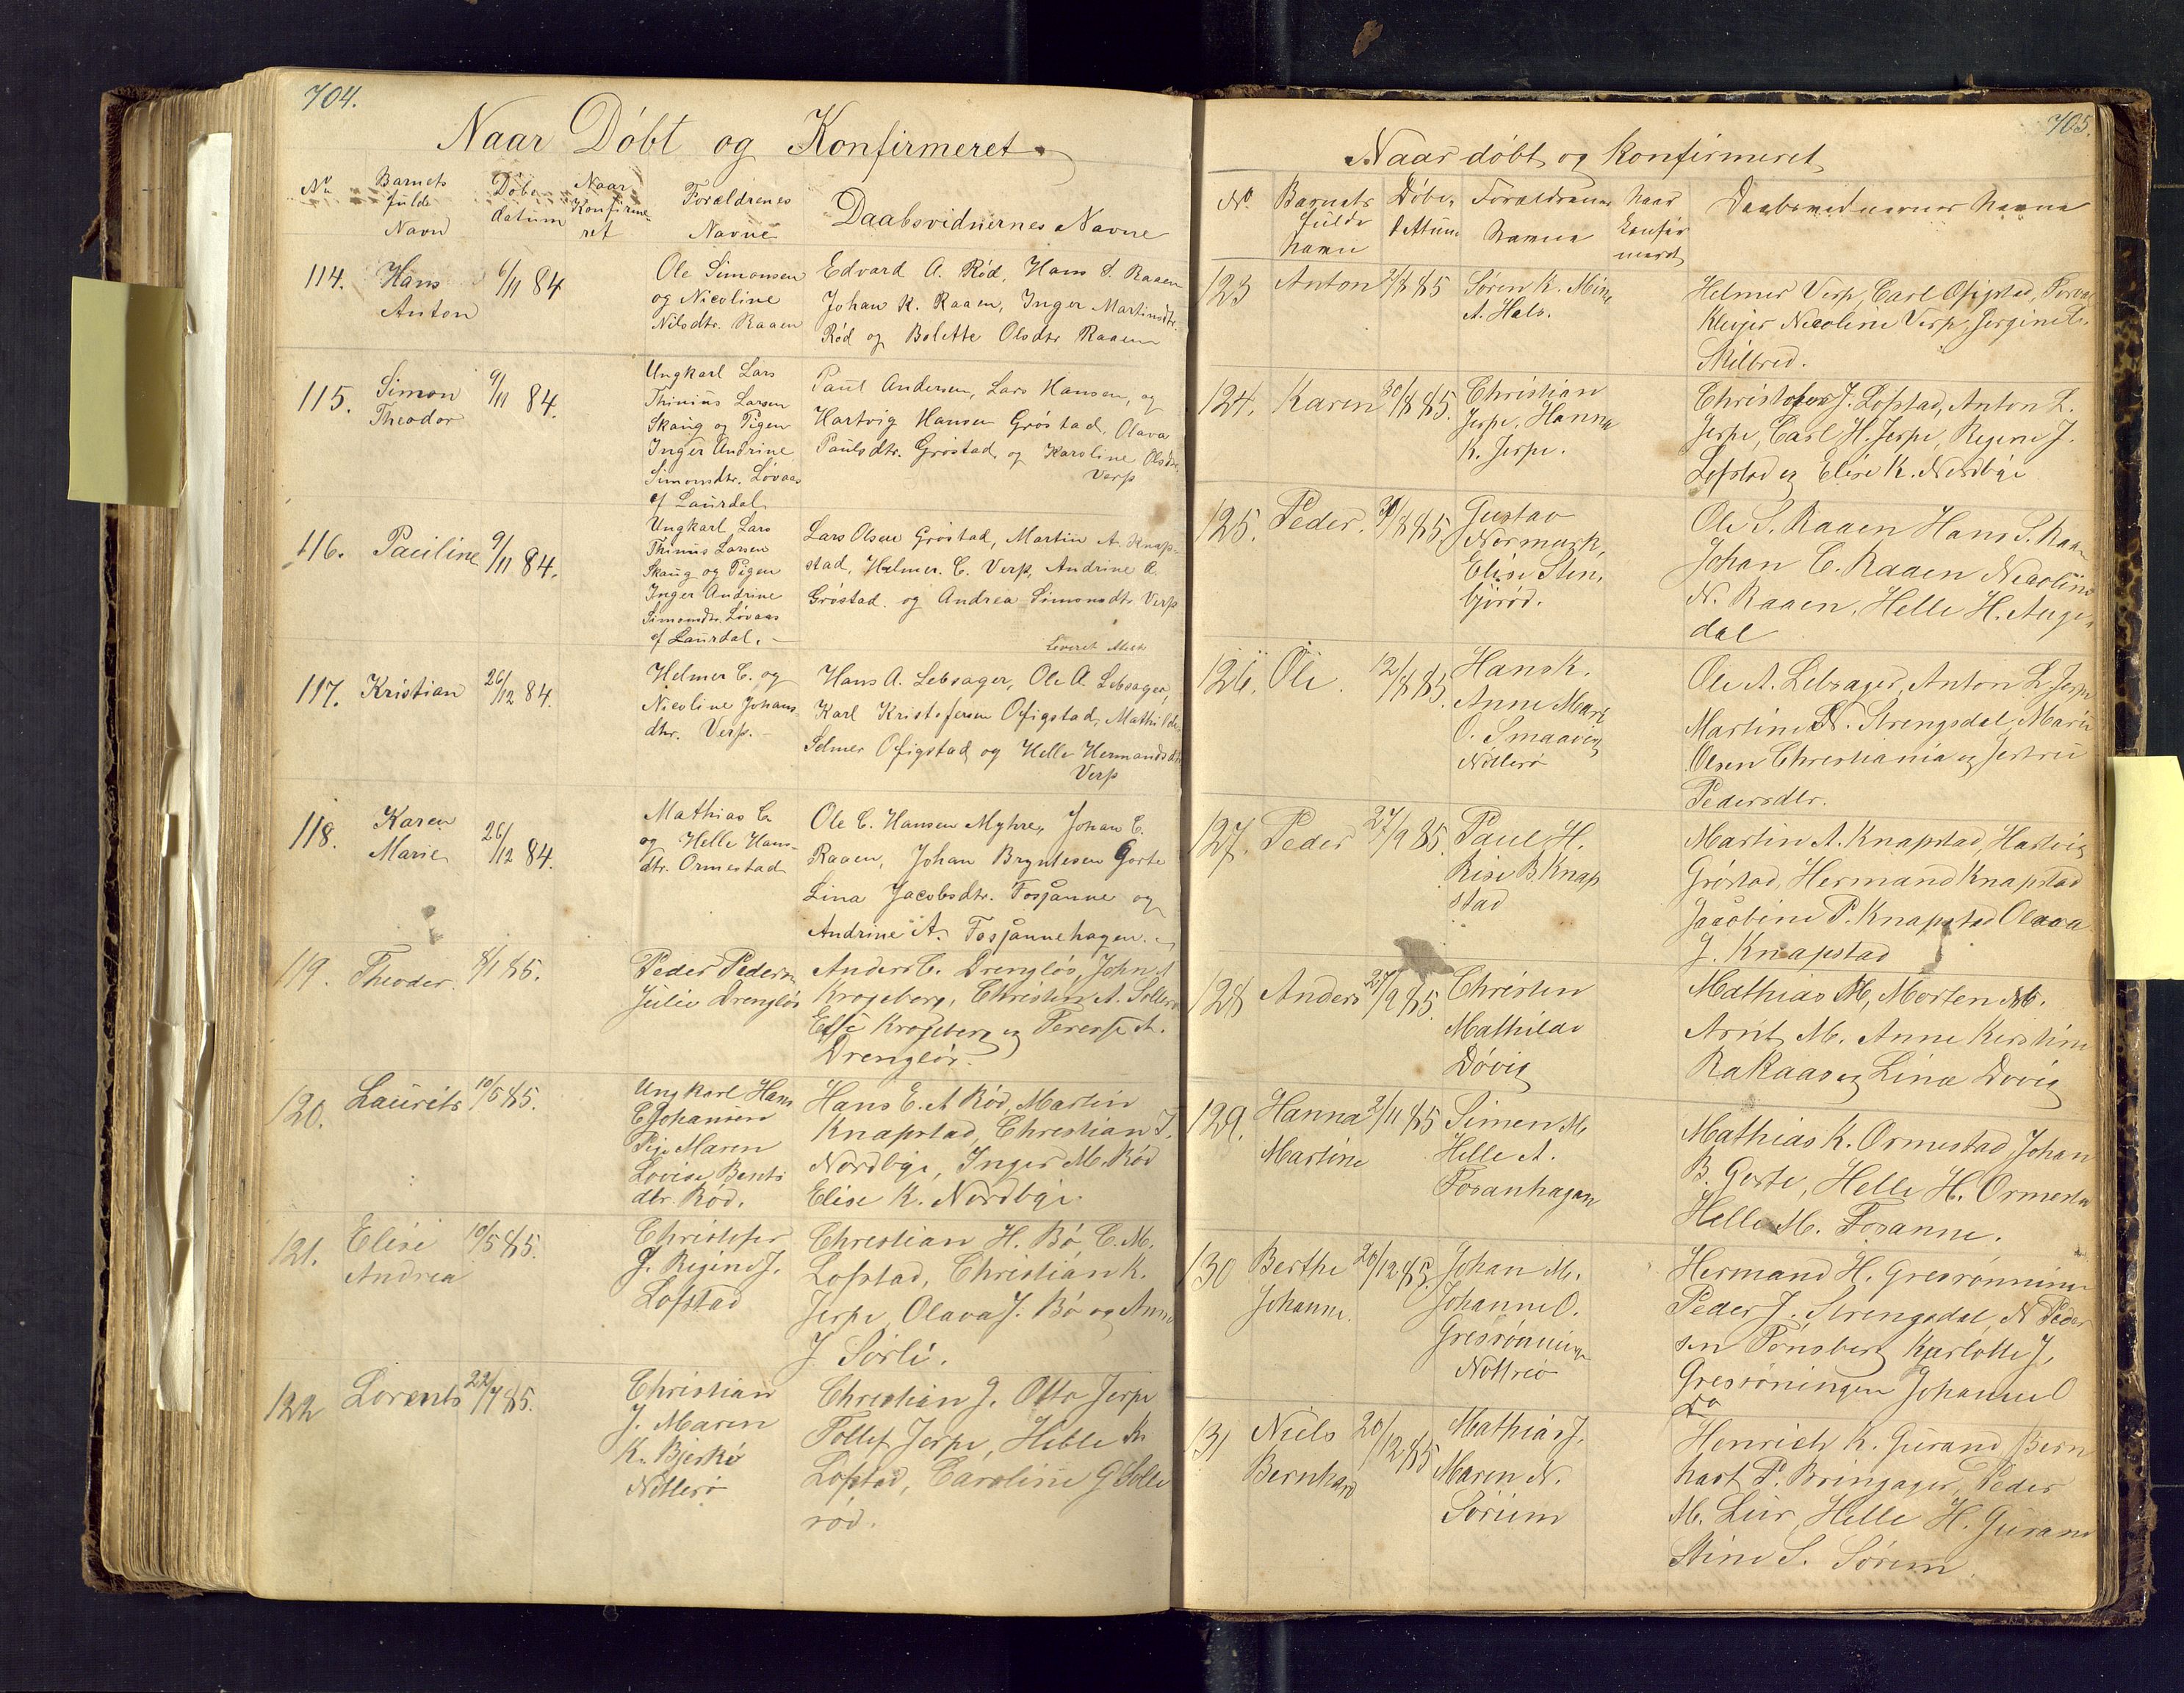 704.
Naar Döbt og Konfirmeret
No Barnets fulde Navn
Döbe datum
Naar Konfirmeret
Forældrenes Navne
Daabsvidnernes Navne
114. Hans Anton 6/11 84
Ole Simonsen
og Nicoline
Nilsdtr. Raaen
Edvard A. Röd, Hans S. Raaen
Johan K. Raaen, Inger Martinsdtr.
Röd og Bolette Olsdtr Raaen
115. Simon Theodor 9/11 84.
Ungkarl Lars
Thinius Larsen
Skaug og Pigen
Inger Andrine
Simonsdtr. Lövaas
af Laurdal
Paul Andersen, Lars Hansen, og
Hartvig Hansen Gröstad, Olava
Paulsdtr. Gröstad, og Karoline Olsdtr.
Verp
116. Pauline 9/11 84.
Ungkarl Lars
Thinius Larsen
Skaug og Pigen
Inger Andrine
Simonsdtr. Lövaas
af Laurdal.
Lars Olsen Gröstad, Martin A. Knap-
stad, Helmer C. Verp, Andrine A.
Gröstad og Andrea Simonsdtr Verp
Leveret
117. Kristian 26/12 84.
Helmer C. og
Nicoline Johans-
dtr. Verp.
Hans A. Lebsager, Ole A. Lebsager,
Karl Kristofersen Ofigstad, Mathilde
Selmer Ofigstad og Helle Hermandsdtr
Verp
118. Karen Marie 26/12 84.
Mathias C.
og Helle Hans-
dtr. Ormestad
Ole C. Hansen Myhre, Johan C.
Raaen, Johan Bryntesen Gorte
Lina Jacobsdtr. Fosjanne og
Andrine A. Fosjannehagen.
119. Theodor. 8/1 85.
Peder Pedersen
Julie Drenglös
Anders C. Drenglös, John A
Krogeberg, Christin A.
Else Krogeberg og A.
Drenglös.
120. Laurits 10/5 85.
Ungkarl Hans
E Johansen
Pige Maren
Lovise Bents
dtr. Röd.
Hans E. A Röd, Martin
Knapstad, Christian J.
Nordbye, Inger M. Röd
Elise K. Nordbye
121. Elise Andrea 10/5 85.
Christofer
J. Regine J.
Lofstad
Christian H. Bö, C. M.
Lofstad, Christian K.
Jerpe, Olava J. Bö og Anne
J Sörli.
122 Lorents 22/7 85.
Christian
J. Maren
K. Bjerkö
Nötterö
Christian J. Otto Jerpe
Tollef Jerpe, Helle K.
Lofstad, Caroline G
röd.
705.
Naar döbt og konfirmeret
No. Barnets fulde Navn
Döbe, dattum
Foraldrenes Navne
Naar konfirmeret
Daabsvidnernes Navne
123 Anton 2/8 85
Sören K. Mine
A. Hals.
Helmer Verp, Carl Ofigstad,
Nicoline Verp, Jorgine L.
Skilbred.
124. Karen 30/8 85.
Christian
Jerpe, Hanna
K. Jerpe.
Christofer J. Lofstad, Anton L.
Jerpe, Carl H. Jerpe, Regine J.
Lofstad og Elise K. Nordbye
125. Peder. 30/8 85.
Gustav
Normark,
Elise Sten,
Gjöröd.
Ole S. Raaen Hans S. Raaen
Johan C. Raaen Nicoline
N. Raaen, Helle H. Auge
dal
126. Ole. 12/8 85.
Hans K.
Anne Mart.
O. Smaavig
Nötterö
Ole A. Lebsager, Anton L Jerpe
Martin N. Strengsdal, Marie
Olsen Christiania og
Pedersdtr.
127. Peder 27/9 85.
Paul H.
Rise B. Knap
stad
Martin A. Knapstad, Hartvig
Gröstad, Hermand Knapstad
Jacobine P. Knapstad Olava
J. Knapstad
128 Anders 27/9 85.
Christen
Mathilde
Dövig
Mathias M, Morten M.
Arnt M. Anne Kirstine
Rakaas og Lina Dovig
129. Hanna Martine 2/11 85
Simen M.
Helle A.
Fosanhagen
Mathias K. Ormestad, Johan
B. Gorte, Helle H. Ormesta
Helle M. Fosanne.
130 Berthe Johanne. 20/12 85.
Johan M.
Johanne O.
Gresröningen
Nöttrö
Hermand H. Gresrönningen
Peder J. Strengsdal, N Peder
sen Tönsberg Karlotte J.
Gresröningen Johanne O
Do
131 Niels Bernhard 20/12 85
Mathias J.
Maren N.
Sörum
Henrich K. Gurand, Bern
hart P. Bringager, Peder
M. Leir, Helle H. Gurand
Stine S. Sörum